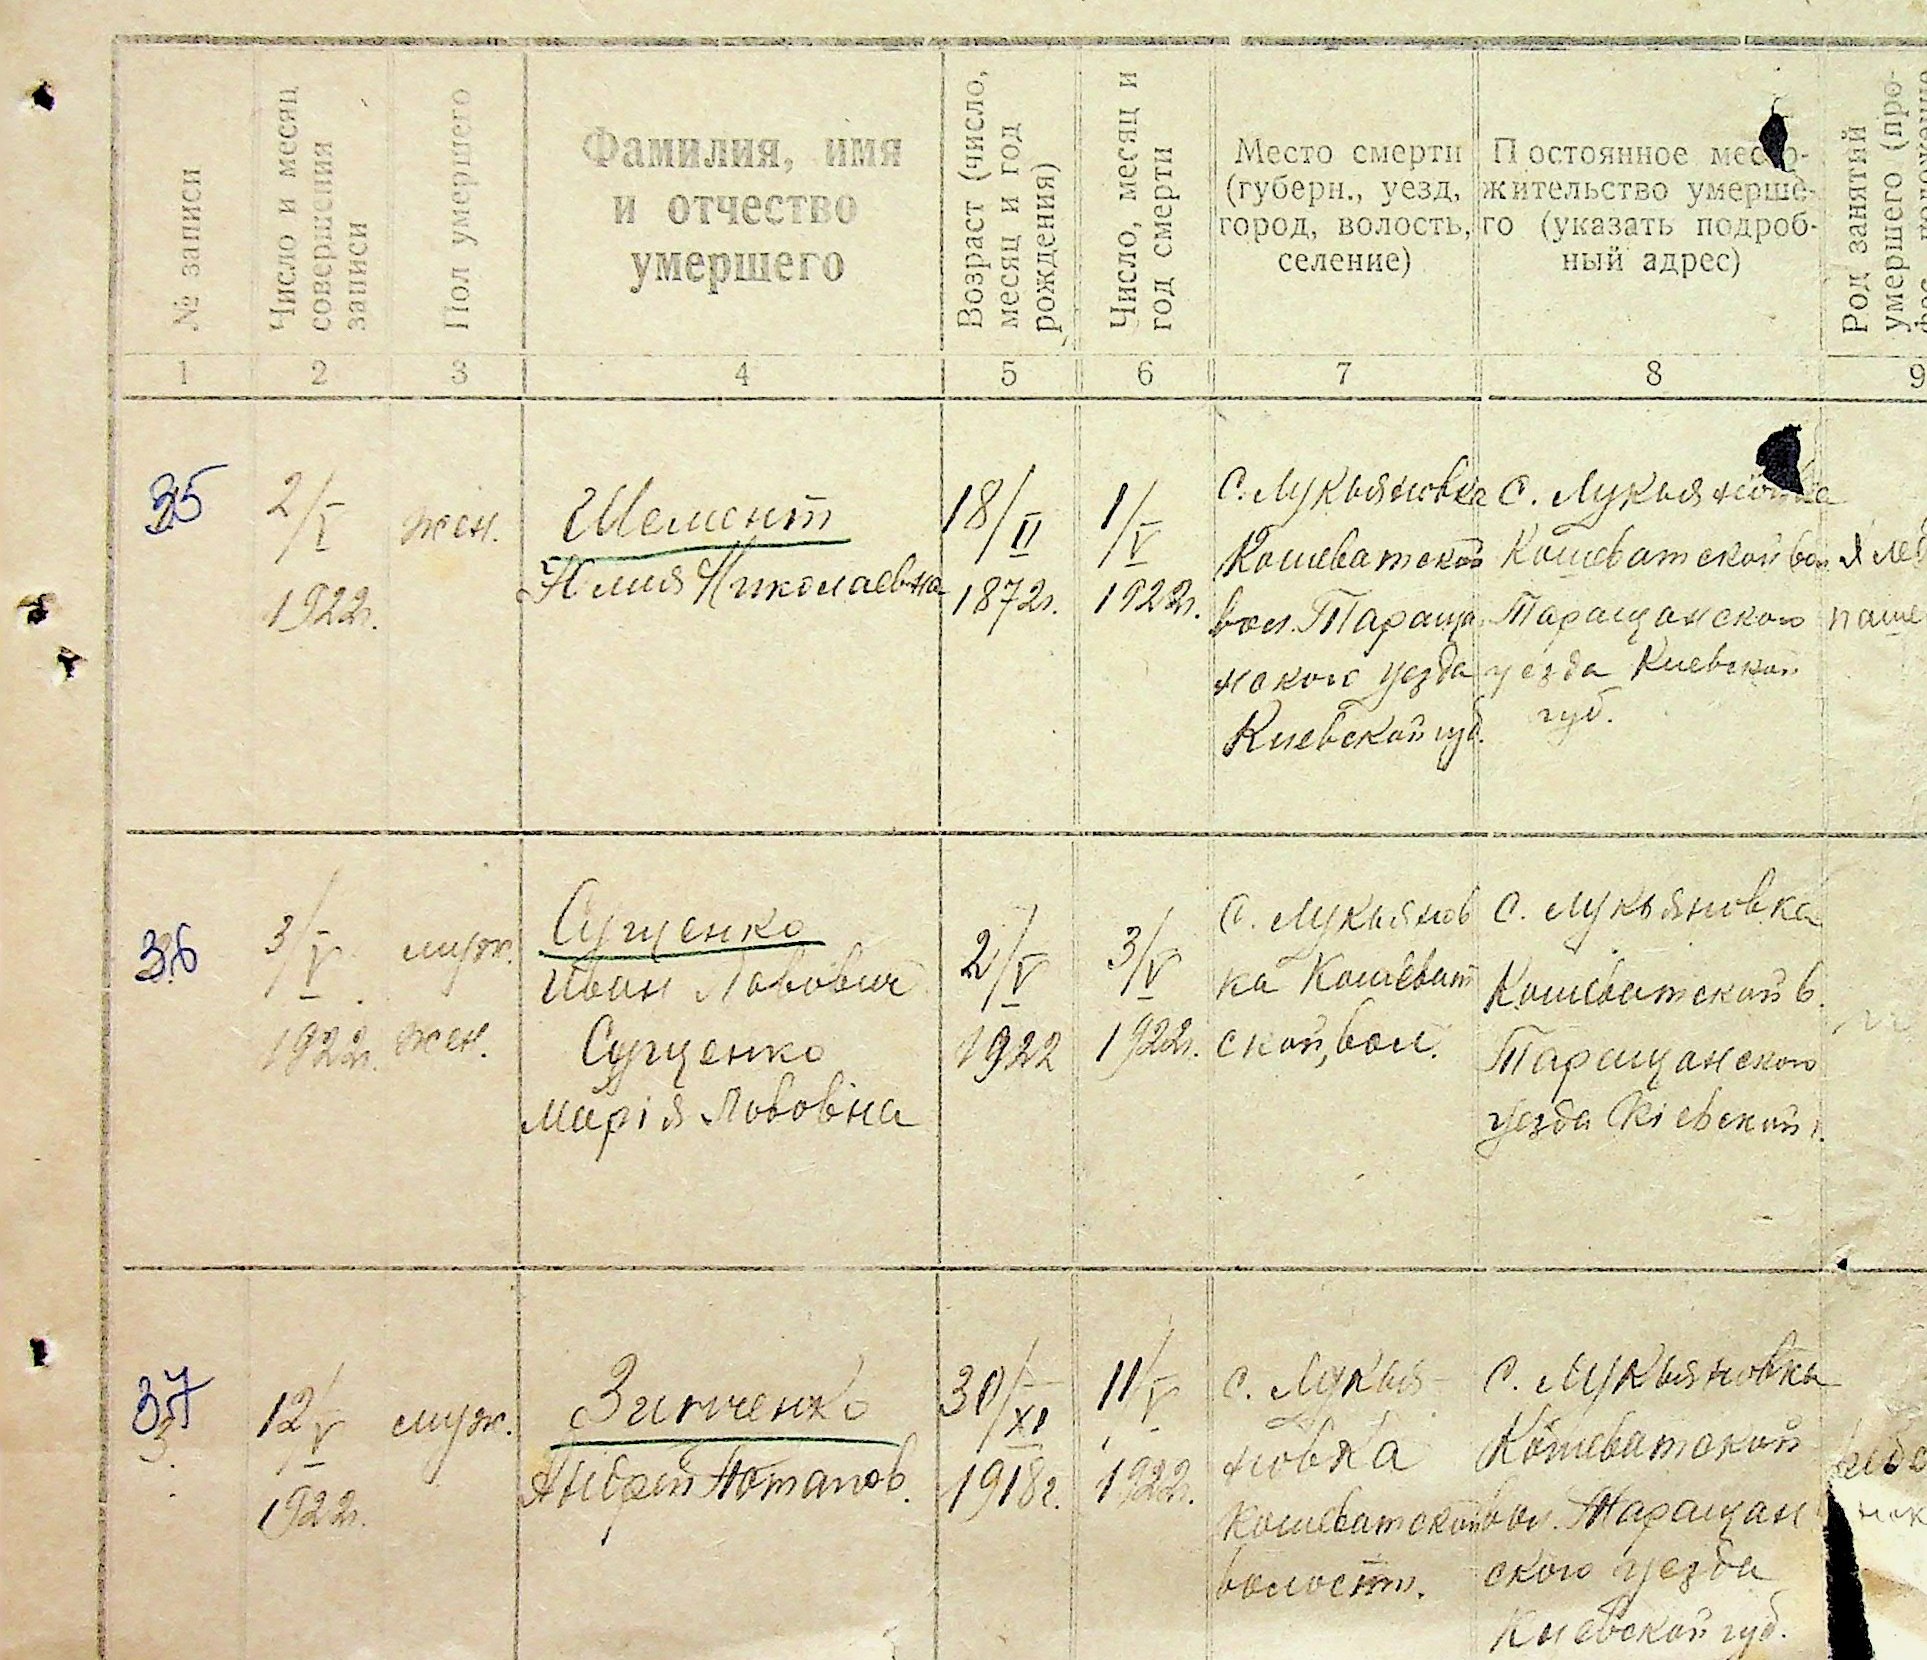 № записи
Число и месяц
совершения
записи
Пол умершего
Фамилия, имя
и отчество
умершего
Возраст (число,
месяц и год
рождения)
Число, месяц и
год смерти
Место смерти
(губерн., уезд,
город, волость,
селение)
Постоянное место-
жительство умерше-
го (указать подроб-
ный адрес)
Род занятий
умершего (про-
1 2 3 4 5 6 7 8 9
35
2/V
1922г.
жен.
Шемент
Юлия Николаевна
18/II
1872г.
1/V
1922г.
с. Лукьяновка
Кошеватской
вол. Тараща
нского уезда
Киевской губ.
с. Лукьяновка
Кошеватской вол
Таращанского
уезда Киевской
губ.
36
3/V
1922г.
муж.
жен.
Сущенко
Иван Львович
Сущенко
Марія Львовна
2/V
1922
3/V
1922г.
с. Лукьянов
ка Кошеват
ской, вол.
с. Лукьяновка
Кошеватской в.
Таращанского
уезда Кіевской г.
37
12/V
1922г.
муж.
Зинченко
Андрей Потапов.
30/XI
1918г.
11/V
1922г.
с. Лукья
новка
Кошеватской
волости.
с. Лукьяновка
Кошеватской
вол. Таращан
ского уезда
Киевской губ.